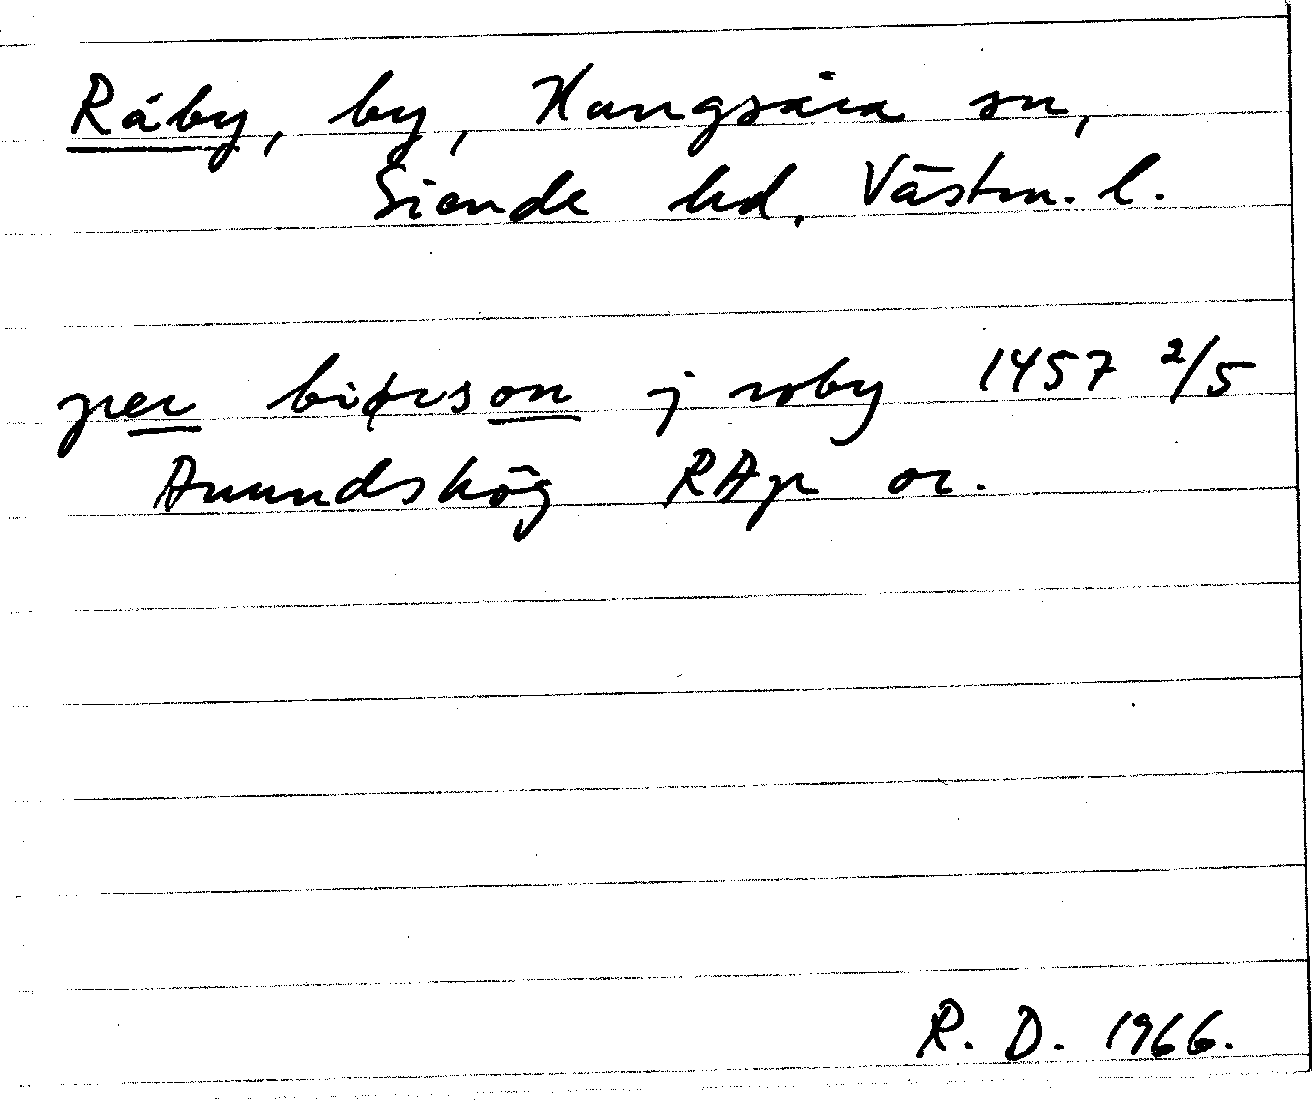 Råby, by, Hangsåra sn,
Siende hd, Västm. l.
per biørson j roby 1457 2/5
Anundshög RAp or.
R. D. 1966.